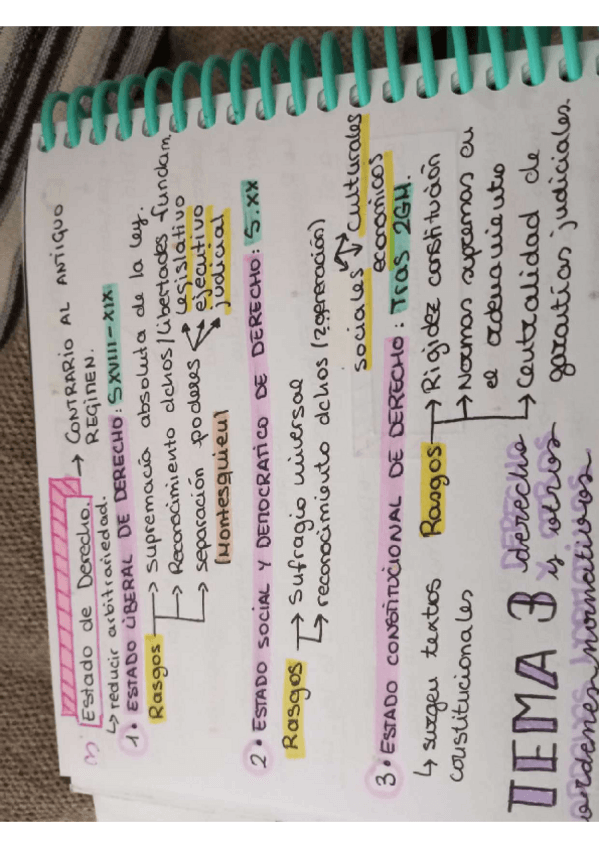 3) Estado de Derecho. → CONTRARIO AL ANTIGUO
REGIMEN.
↳ reducir arbitrariedad.
1. ESTADO LIBERAL DE DERECHO: S.XVIII-XIX
Rasgos → Supremacía absoluta de la ley.
→ Reconocimiento dchos/libertades fundam.
→ separación poderes → legislativo
ejecutivo
judicial
(Montesquieu)
2. ESTADO SOCIAL Y DEMOCRATICO DE DERECHO: S.XX
Rasgos → Sufragio universal
↳ reconocimiento dchos (2ªgeneración)
sociales culturales
económicos
3. ESTADO CONSTITUCIONAL DE DERECHO: Tras 2GM.
↳ surgen textos
constitucionales
Rasgos → Rigidez constitución
→ Normas supremas en
el ordenamiento
↳ Centralidad de
garantías judiciales.
TEMA 3 derecho
y otros
ordenes normativos